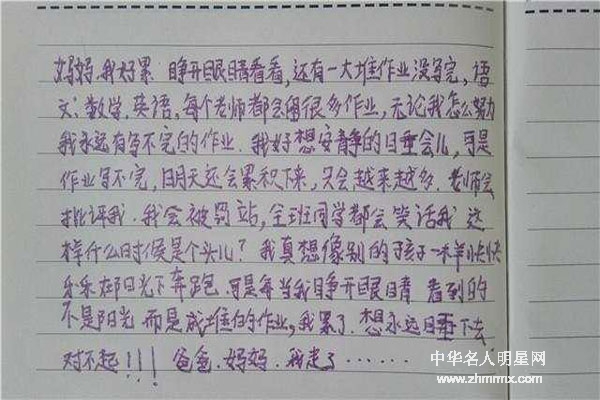 妈妈，我好累 睁开眼睛看看，还有一大堆作业没写完，语
文，数学，英语，每个老师都会留很多作业，无论我怎么努
我永远有写不完的作业．我好想安静的睡会儿，可是
作业写不完，明天还会累积下来，只会越来越多．老师会
批评我．我会被罚站，全班同学都会笑话我 这
样什么时候是个头儿？我真想像别的孩子一样快快
乐乐在阳光下奔跑 可是每当我睁开眼睛 看到的
不是阳光 而是成堆的作业，我累了．想永远睡下去
对不起！！！爸爸．妈妈．我走了……
中华名人明星网
www.zhmrmx.com